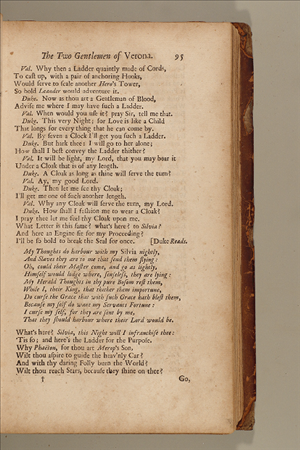 The Two Gentlemen of Verona. 95
Val. Why then a Ladder quaintly made of Cords,
To cast up, with a pair of anchoring Hooks,
Would serve to scale another Hero's Tower,
So bold Leander would adventure it.
Duke. Now as thou art a Gentleman of Blood,
Advise me where I may have such a Ladder.
Val. When would you use it? pray Sir, tell me that.
Duke. This very Night; for Love is like a Child
That longs for every thing that he can come by.
Val. By seven a Clock I'll get you such a Ladder.
Duke. But hark thee: I will go to her alone;
How shall I best convey the Ladder thither?
Val. It will be light, my Lord, that you may bear it
Under a Cloak that is of any length.
Duke. A Cloak as long as thine will serve the turn?
Val. Ay, my good Lord.
Duke. Then let me see thy Cloak;
I'll get me one of such another length.
Val. Why any Cloak will serve the turn, my Lord.
Duke. How shall I fashion me to wear a Cloak?
I pray thee let me feel thy Cloak upon me.
What Letter is this same? what's here? to Silvia?
And here an Engine fit for my Proceeding?
I'll be so bold to break the Seal for once. [Duke Reads.
My Thoughts do harbour with my Silvia nightly,
And Slaves they are to me that send them flying:
Oh, could their Master come, and go as lightly,
Himself would lodge where, senseless, they are lying:
My Herald Thoughts in thy pure Bosom rest them,
While I, their King, that thither them importune,
Do curse the Grace that with such Grace hath blest them,
Because my self do want my Servants Fortune:
I curse my self, for they are sent by me,
That they should harbour where their Lord would be.
What's here? Silvia, this Night will I infranchise thee:
'Tis so; and here's the Ladder for the Purpose.
Why Phaeton, for thou art Merops's Son.
Wilt thou aspire to guide the heav'nly Car?
And with thy daring Folly burn the World?
Wilt thou reach Stars, because they shine on thee?
† Go,